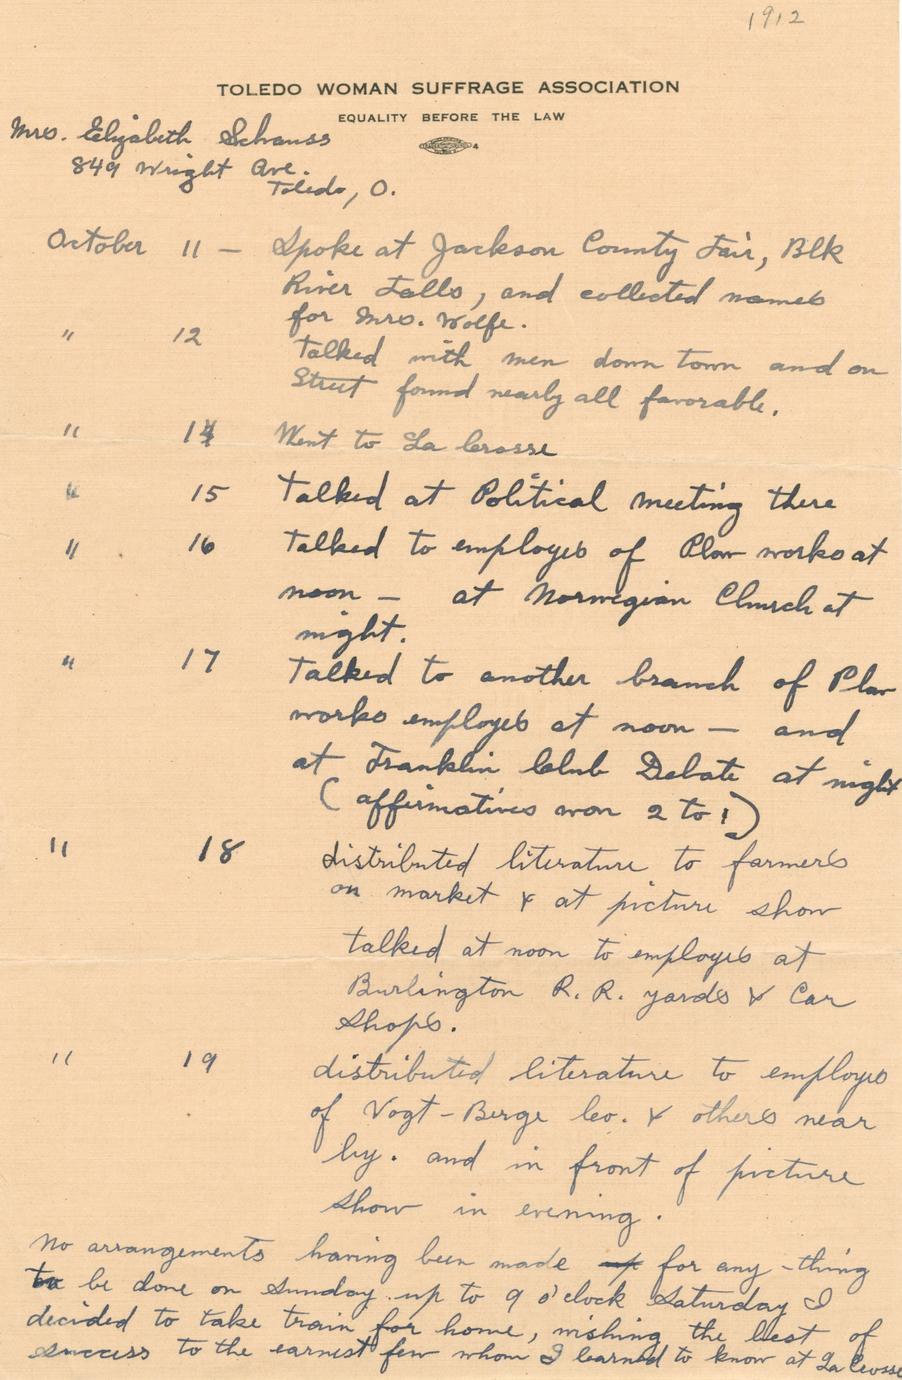 1912
TOLEDO WOMAN SUFFRAGE ASSOCIATION
EQUALITY BEFORE THE LAW
Mrs. Elizabeth Schauss
849 Wright Ave.
Toledo, O.
October 11 — Spoke at Jackson County Fair, Blk
River Falls, and collected names
for Mrs. Wolfe.
" 12 Talked with men down town and on
Street found nearly all favorable.
" 14 Went to La Crosse
" 15 Talked at Political meeting there
" 16 Talked to employes of Plow works at
noon — at Norwegian Church at
night.
" 17 Talked to another branch of Plow
works employes at noon — and
at Franklin Club Debate at night
(affirmatives won 2 to 1)
" 18 distributed literature to farmers
on market & at picture show
talked at noon to employes at
Burlington R. R. yards & Car
Shops.
" 19 distributed literature to employes
of Vogt-Berge Co. & others near
by. and in front of picture
show in evening.
No arrangements having been made up for any-thing
to be done on Sunday up to 9 o'clock Saturday I
decided to take train for home, wishing the best of
success to the earnest few whom I learned to know at La Crosse